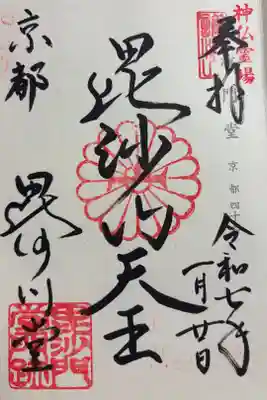 神仏霊場
奉拝
堂 京都四十
令和七年
一月廿日
毘沙門天王
京都
毘沙門堂
毘沙門
堂門跡